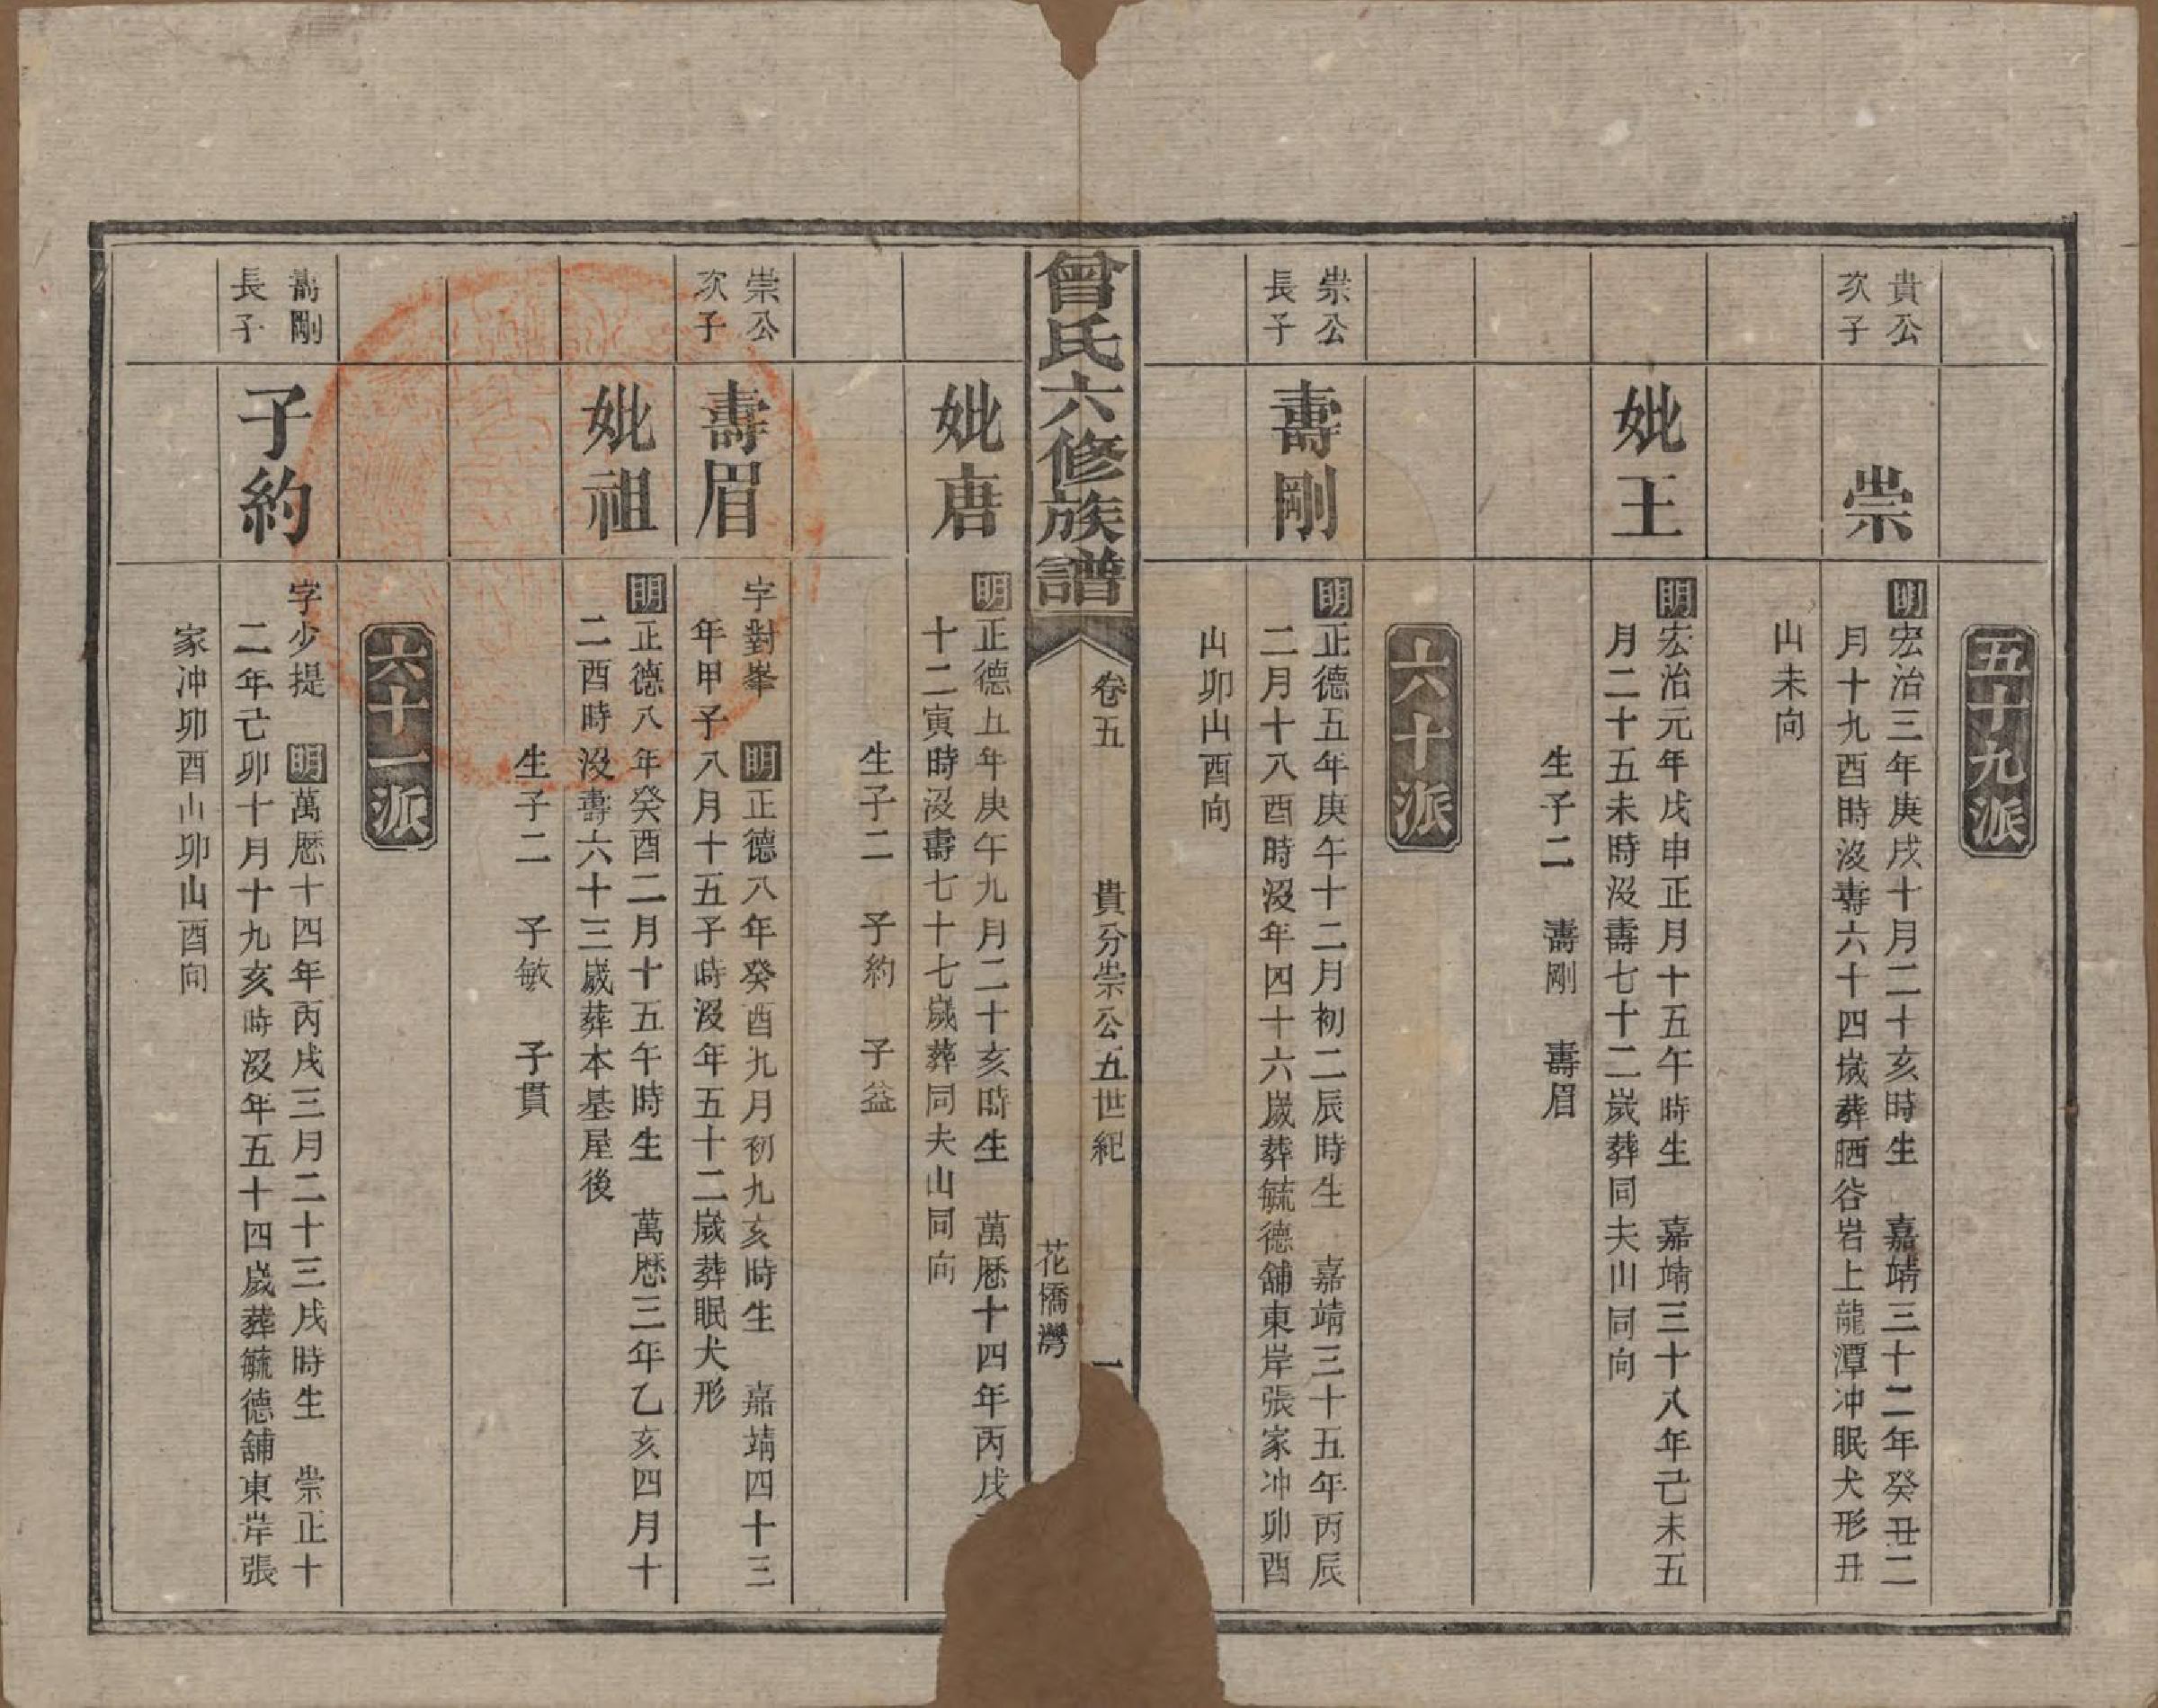 五十九派
貴公
次子
崇
明宏治三年庚戌十月二十亥時生　嘉靖三十二年癸丑二
月十九酉時沒壽六十四歲葬晒谷岩上龍潭冲眠犬形丑
山未向
妣王
明宏治元年戊申正月十五午時生　嘉靖三十八年己未五
月二十五未時沒壽七十二歲葬同夫山同向
生子二　壽剛　壽眉
六十派
崇公
長子
壽剛
明正德五年庚午十二月初二辰時生　嘉靖三十五年丙辰
二月十八酉時沒年四十六歲葬毓德舖東岸張家冲卯酉
山卯山酉向
曾氏六修族譜
卷五　貴分崇公五世紀　一
花橋灣
妣唐
明正德五年庚午九月二十亥時生　萬歷十四年丙戌
十二寅時沒壽七十七歲葬同夫山同向
生子二　子約　子益
崇公
次子
壽眉
字對峯　明正德八年癸酉九月初九亥時生　嘉靖四十三
年甲子八月十五子時沒年五十二歲葬眠犬形
妣祖
明正德八年癸酉二月十五午時生　萬歷三年乙亥四月十
二酉時沒壽六十三歲葬本基屋後
生子二　子敏　子貫
六十一派
壽剛
長子
子約
字少提　明萬歷十四年丙戌三月二十三戌時生　崇正十
二年己卯十月十九亥時沒年五十四歲葬毓德舖東岸張
家冲卯酉山卯山酉向